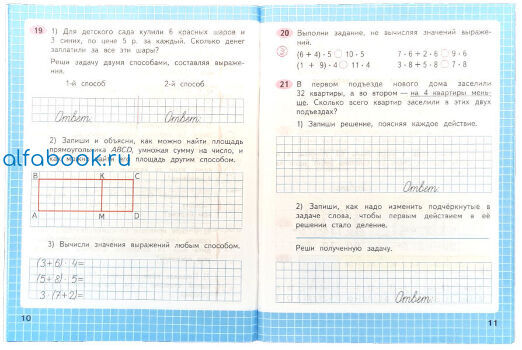 19 1) Для детского сада купили 6 красных шаров и
3 синих, по цене 5 р. за каждый. Сколько денег
заплатили за все эти шары?
Реши задачу двумя способами, составляя выраже-
ния.
1-й способ 2-й способ
Ответ: Ответ:
2) Запиши и объясни, как можно найти площадь
прямоугольника ABCD, умножая сумму на число, и
как можно найти его площадь другим способом.
alfabook.ru
B K C
A M D
3) Вычисли значения выражений любым способом.
(3+6) · 4=
(5+8) · 5=
3 · (7+2)=
10
20 Выполни задание, не вычисляя значений выраже-
ний.
(6 + 4) · 5 10 · 5 7 · 6 + 2 · 6 9 · 6
(1 + 9) · 4 11 · 4 3 · 8 + 5 · 8 7 · 8
21 В первом подъезде нового дома заселили
32 квартиры, а во втором — на 4 квартиры мень-
ше. Сколько всего квартир заселили в этих двух
подъездах?
1) Запиши решение, поясняя каждое действие.
Ответ:
2) Запиши, как надо изменить подчёркнутые в
задаче слова, чтобы первым действием в её
решении стало деление.
Реши полученную задачу.
Ответ:
11